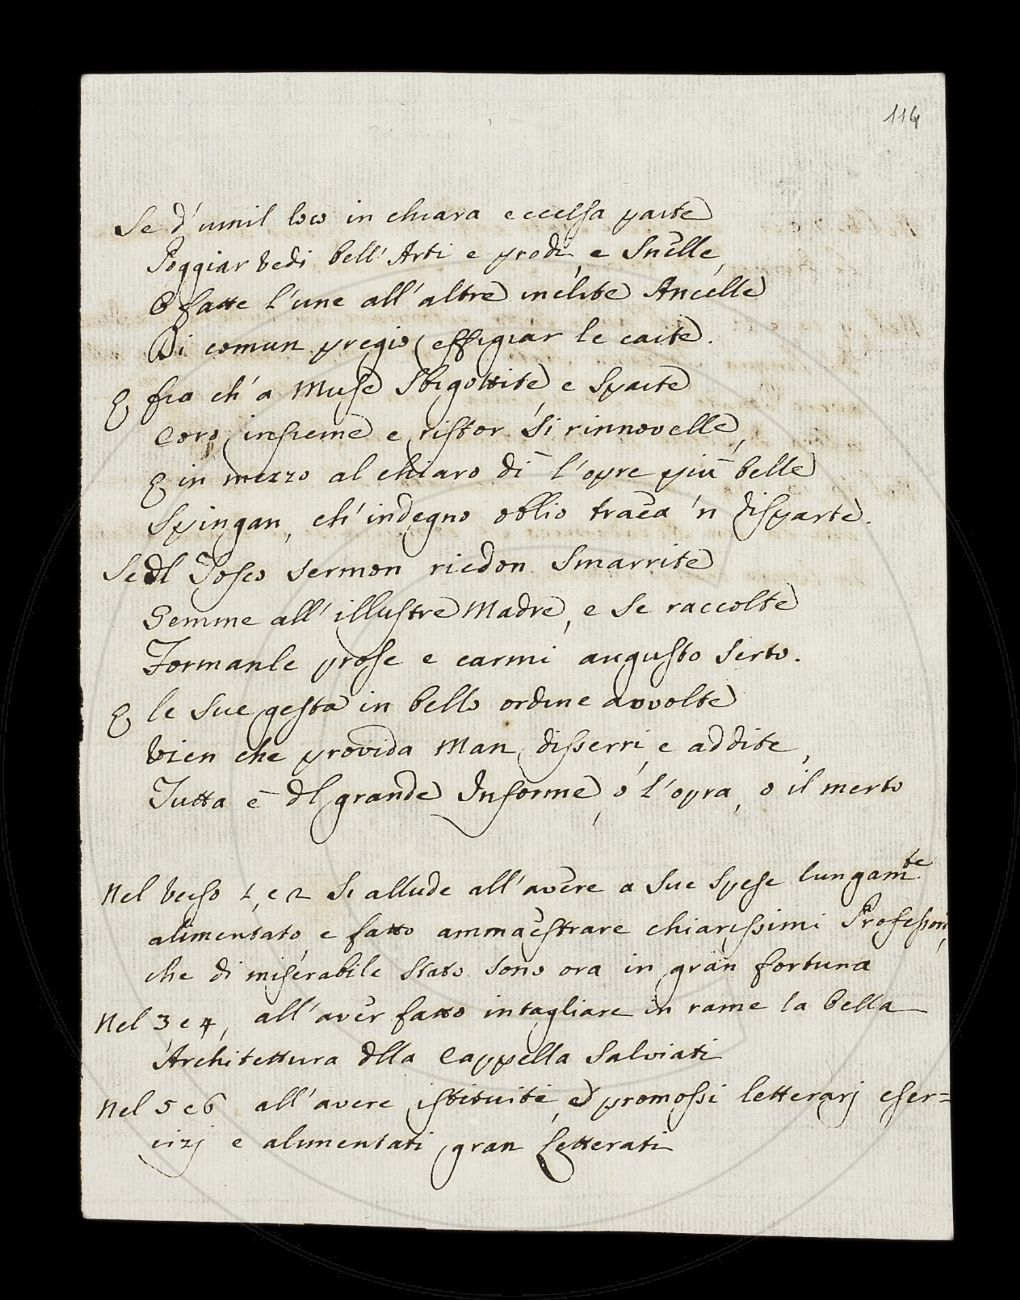 114
Se d'umil loco in chiara eccelsa parte
Poggiar vedi bell'Arti e prodi, e snelle,
E fatte l'une all'altre inclite Ancelle
Di comun pregio effigiar le carte.
E fia ch'a Muse sbigottite, e sparte
Coro insieme e ristor si rinnovelle,
E in mezzo al chiaro dì l'opre più belle
Spingan, ch'indegno oblio traea 'n disparte.
Se dl Tosco sermon riedon smarrite
Gemme all'illustre Madre, e se raccolte
Formanle prose e carmi augusto serto.
E le sue gesta in bello ordine avvolte
Vien che provida man disserri, e addite,
Tutta è dl grande Insorme, o l'opra, o il merto
Nel verso 1, e 2 si allude all'avere a sue spese lungamte
alimentato, e fatto ammaestrare chiarissimi Professori,
che di miserabile stato sono ora in gran fortuna
Nel 3 e 4, all'aver fatto intagliare in rame la bella
Architettura dlla Cappella Salviati
Nel 5 e 6 all'avere istituiti, ed promossi letterarj eser=
cizj e alimentati gran Letterati